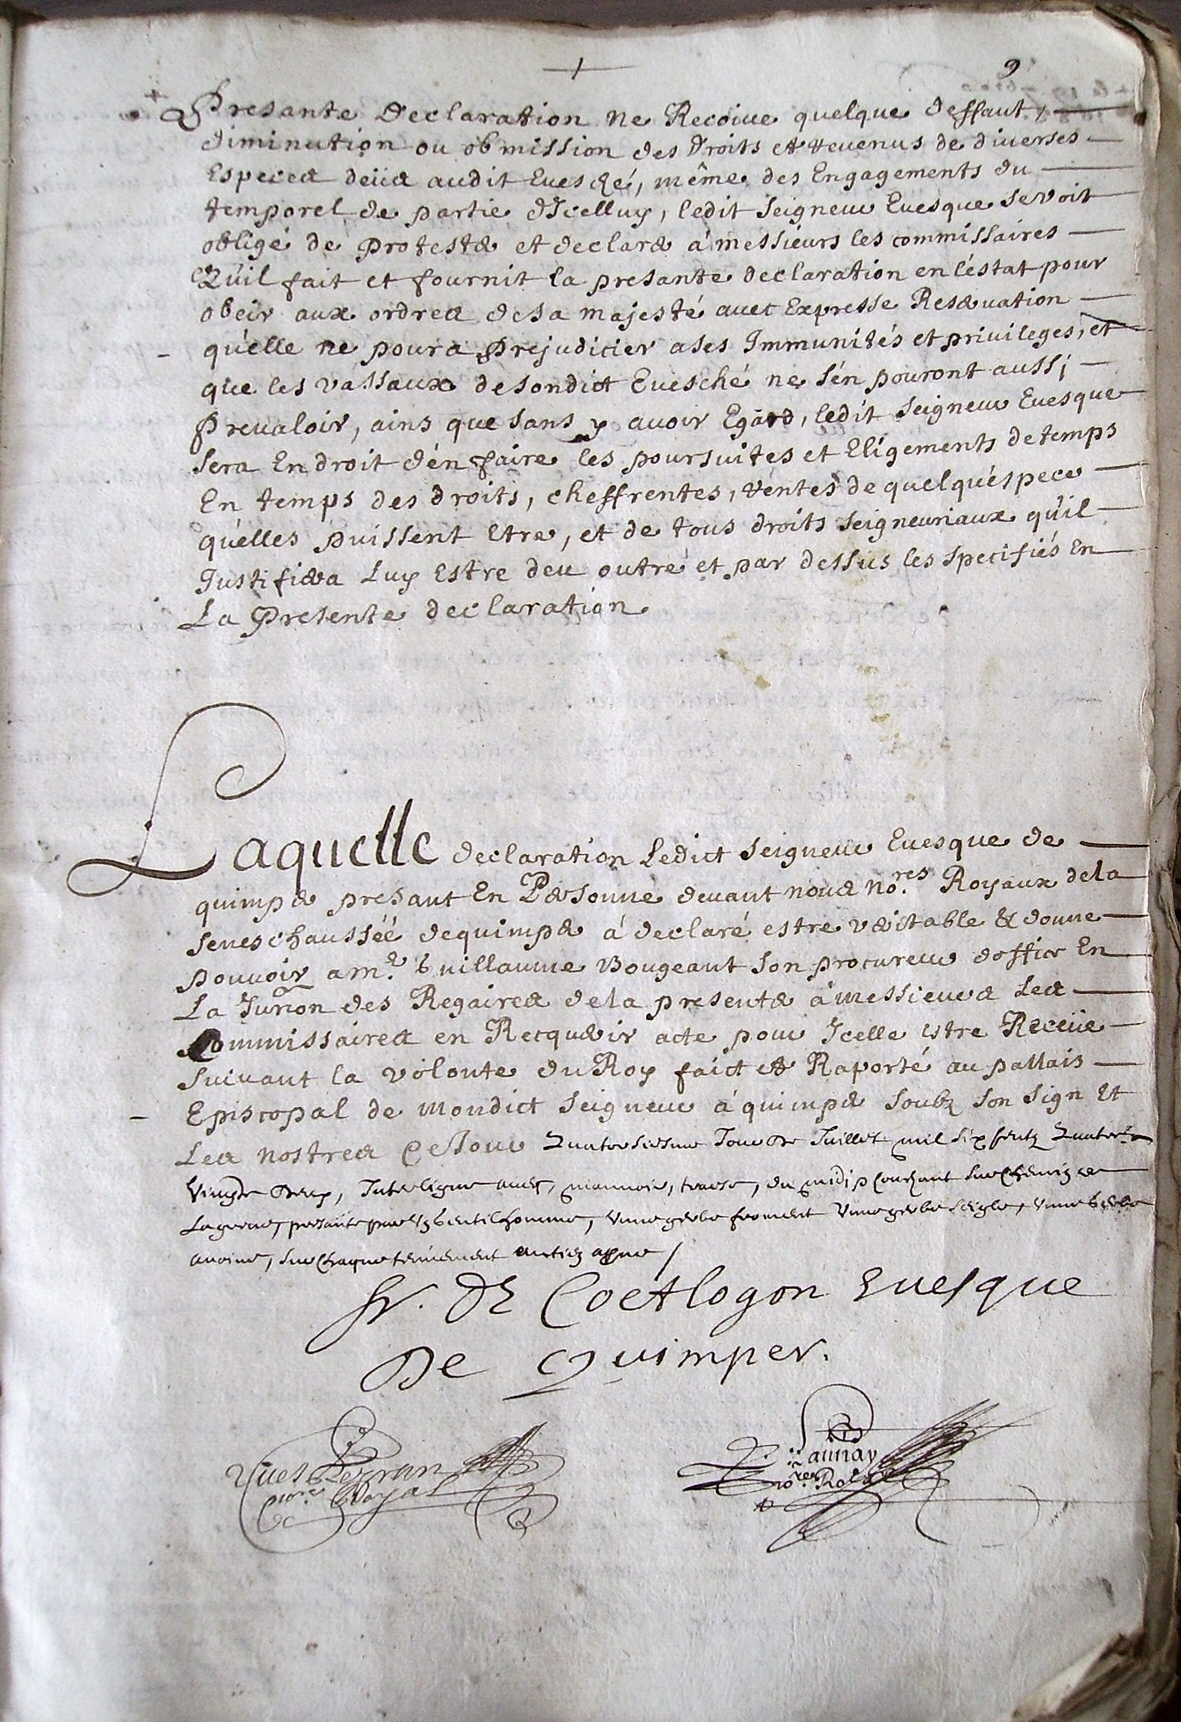 9
Presante declaration ne Recoive quelque deffaut,
diminution ou obmission des droits et revenus de diverses
Especes deües audit Evesché, même des Engagements du
temporel de partie d'Icelluy, ledit seigneur Evesque seroit
obligé de protester et declarer à messieurs les commissaires
Qu'il fait et fournit la presante declaration en l'éstat pour
obeir aux ordres de sa majesté avec Expresse Reservation
qu'elle ne poura prejuditier a ses Immunités et privileges, et
que les vassaux de son dict Evesché ne s'én pouront aussi
prevaloir, ains que sans y avoir Egard, ledit seigneur Evesque
sera En droit d'én faire les poursuites et Eligements de temps
En temps des droits, cheffrentes, ventes de quelqu'éspece
qu'elles puissent Etre, et de tous droits seigneuriaux qu'il
Justifiera Luy Estre deu outre et par dessus les specifiés En
La Presente declaration.
Laquelle declaration Ledict seigneur Evesque de
quimper presant En Personne devant nous no.res Royaux de la
seneschaussée de quimper à declaré estre veritable & donne
pouvoir a m.e Guillaume Bougeant son procureur d'office En
La Jur̃ion des Regaires de la presenter à messieurs Les
Commissaires en Recquerir acte pour Icelle Estre Receüe
suivant la volonte du Roy faict et Raporté au pallais
Episcopal de mondict seigneur à quimper soubz son sign Et
Les nostres Ce Jour Quatorsiesme Jour de Juillet mil six centz Quatre
Vingts deux, Interligne avec, mannoir, traverse, du midi,
La presante Gentilhomme, Une gerbe froment Une gerbe seigle, Une Gerbe
avoine, sur chaque tenüement
fr. de Coetlogon Evesque
De Quimper.
Yves
no.re Royal
Launay
no.re Royal